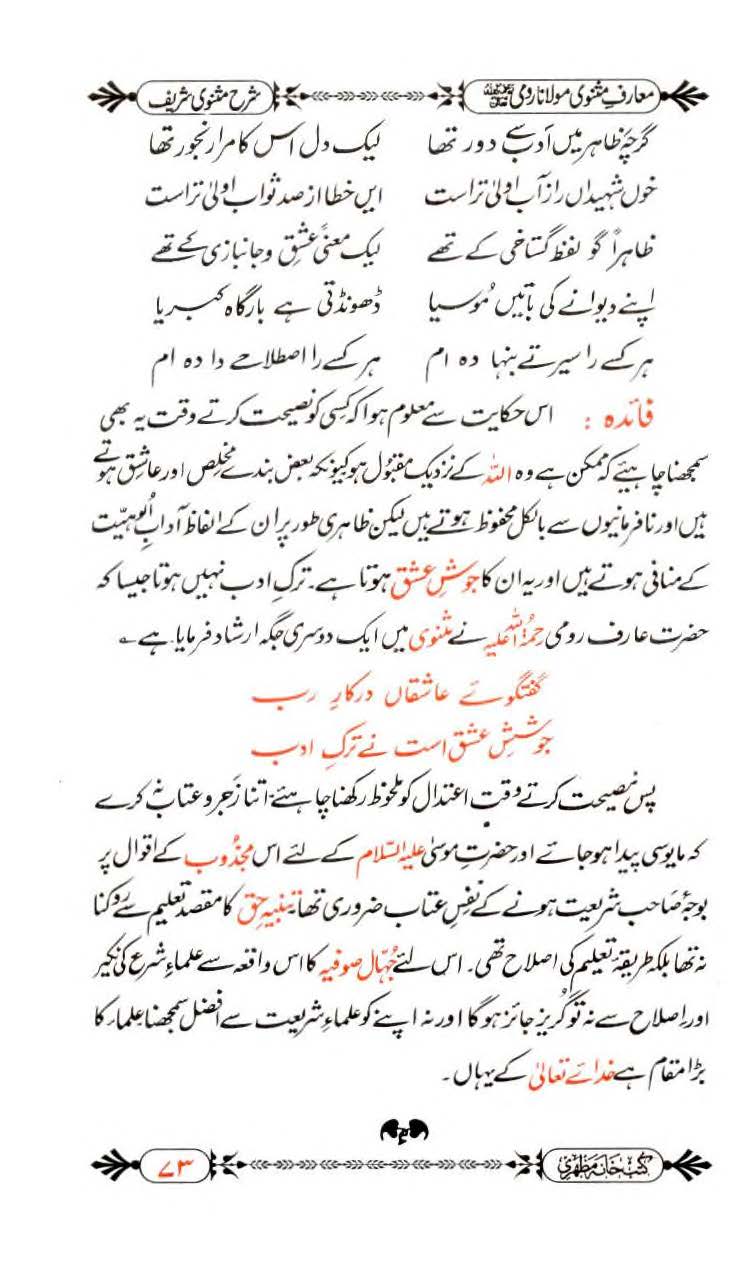 معارفِ مثنوی مولانا رومی رحمۃ اللہ علیہ شرح مثنوی شریف
گرچہ ظاہر میں اَدب سے دور تھا لیک دل اس کا مرا رنجور تھا
خوں شہیداں راز آب اولیٰ تر است ایں خطا از صد ثواب اولیٰ تر است
ظاہراً گو لفظ گستاخی کے تھے لیک معنیً عشق و جانبازی کے تھے
اپنے دیوانے کی باتیں مُوسیا ڈھونڈتی ہے بارگاہ کبریا
ہر کسے را سیرتے بنہا دہ ام ہر کسے را اصطلاحے دا دہ ام
فائدہ : اس حکایت سے معلوم ہوا کہ کسی کو نصیحت کرتے وقت یہ بھی
سمجھنا چاہیئے کہ ممکن ہے وہ اللہ کے نزدیک مقبُول ہو کیونکہ بعض بندے مخلِص اور عاشِق ہوتے
ہیں اور نافرمانیوں سے بالکل محفوظ ہوتے ہیں لیکن ظاہری طور پر ان کے الفاظ آدابِ اُلوہیّت
کے منافی ہوتے ہیں اور یہ ان کا جوشِ عشق ہوتا ہے۔ ترکِ ادب نہیں ہوتا جیسا کہ
حضرت عارف رومی رحمۃُ اللہ علیہ نے مثنوی میں ایک دوسری جگہ ارشاد فرمایا ہے ؎
گفتگوئے عاشقاں درکارِ رب
جوششِ عشق است نے ترکِ ادب
پس نصیحت کرتے وقت اعتدال کو ملحوظ رکھنا چاہئے۔ اتنا زَجر و عتاب نہ کرے
کہ مایوسی پیدا ہو جائے اور حضرتِ موسیٰ علیہ السّلام کے لئے اس مجذُوب کے اقوال پر
بوجہ صَاحب شریعت ہونے کے نفسِ عتاب ضروری تھا تنبیہِ حق کا مقصد تعلیم سے روکنا
نہ تھا بلکہ طریقۂ تعلیم کی اصلاح تھی۔ اس لئے جُہّال صوفیہ کا اس واقعہ سے علماءِ شرع کی نکیر
اور اصلاح سے نہ تو گریز جائز ہو گا اور نہ اپنے کو علماءِ شریعت سے افضل سمجھنا علماء کا
بڑا مقام ہے خدائے تعالیٰ کے یہاں۔
کتب خانہ مظہری ۷۳